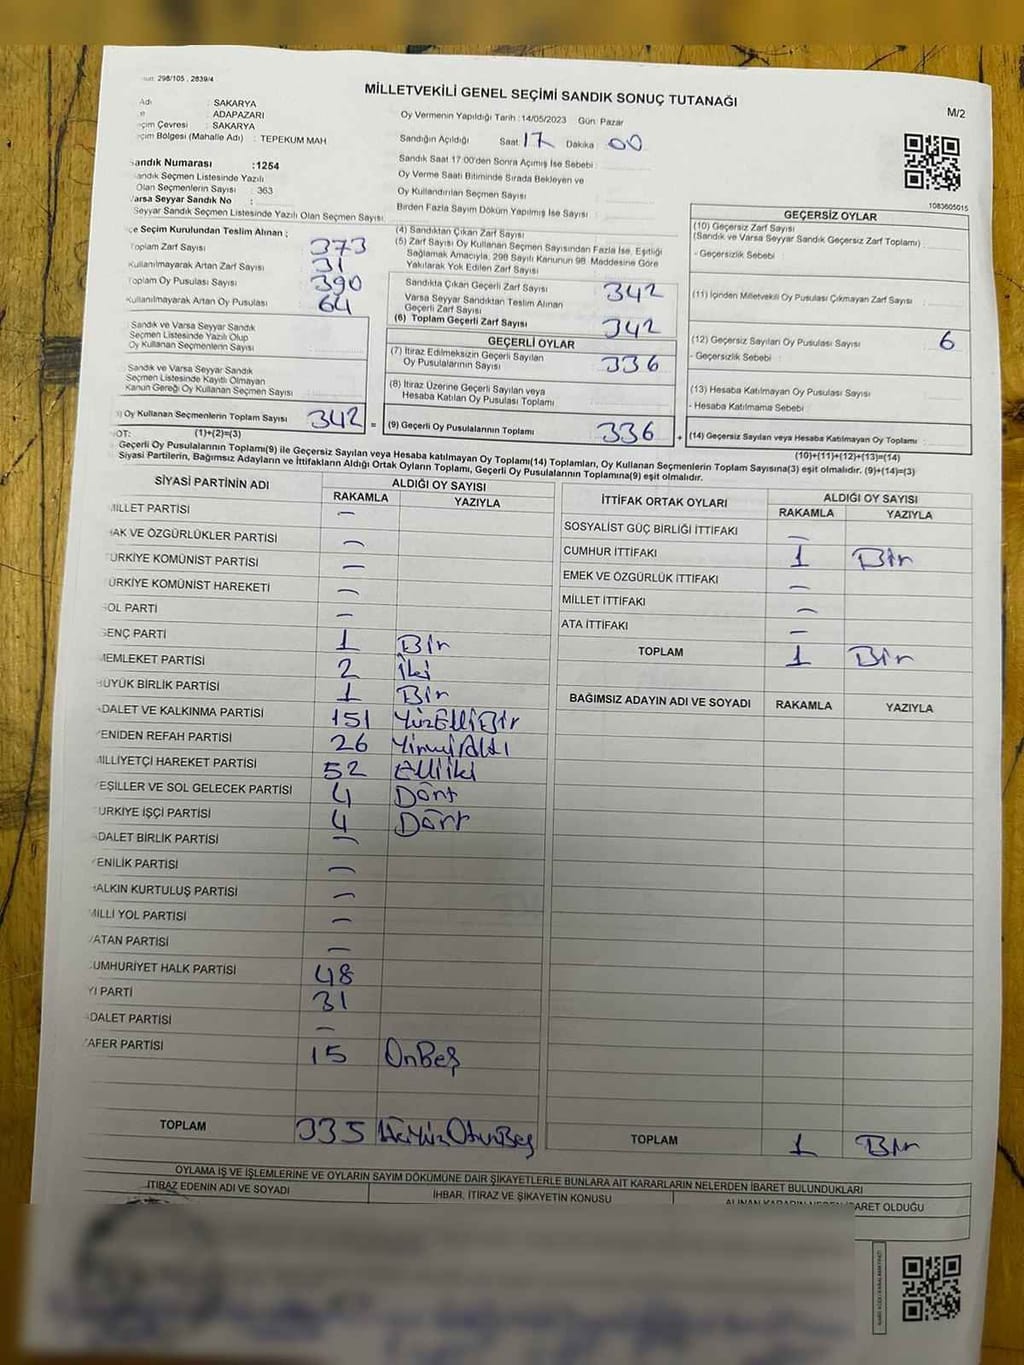 298/105 , 2839/4
MİLLETVEKİLİ GENEL SEÇİMİ SANDIK SONUÇ TUTANAĞI
M/2
Adı : SAKARYA
: ADAPAZARI
Seçim Çevresi : SAKARYA
Seçim Bölgesi (Mahalle Adı) : TEPEKUM MAH
Sandık Numarası :1254
Sandık Seçmen Listesinde Yazılı
Olan Seçmenlerin Sayısı : 363
Varsa Seyyar Sandık No :
Seyyar Sandık Seçmen Listesinde Yazılı Olan Seçmen Sayısı
Oy Vermenin Yapıldığı Tarih : 14/05/2023 Gün: Pazar
Sandığın Açıldığı Saat 17 Dakika 00
Sandık Saat 17:00'den Sonra Açımış İse Sebebi :
Oy Verme Saati Bitiminde Sırada Bekleyen ve
Oy Kullandırılan Seçmen Sayısı
Birden Fazla Sayım Döküm Yapılmış İse Sayısı :
1083605015
İlçe Seçim Kurulundan Teslim Alınan ;
Toplam Zarf Sayısı 373
Kullanılmayarak Artan Zarf Sayısı 31
Toplam Oy Pusulası Sayısı 390
Kullanılmayarak Artan Oy Pusulası 64
Sandık ve Varsa Seyyar Sandık
Seçmen Listesinde Yazılı Olup
Oy Kullanan Seçmenlerin Sayısı
Sandık ve Varsa Seyyar Sandık
Seçmen Listesinde Kayıtlı Olmayan
Kanun Gereği Oy Kullanan Seçmen Sayısı
Oy Kullanan Seçmenlerin Toplam Sayısı 342 =
(1)+(2)=(3)
(4) Sandıktan Çıkan Zarf Sayısı
(5) Zarf Sayısı Oy Kullanan Seçmen Sayısından Fazla İse, Eşitliği
Sağlamak Amacıyla, 298 Sayılı Kanunun 98. Maddesine Göre
Yakılarak Yok Edilen Zarf Sayısı
Sandıkta Çıkan Geçerli Zarf Sayısı 342
Varsa Seyyar Sandıktan Teslim Alınan
Geçerli Zarf Sayısı
(6) Toplam Geçerli Zarf Sayısı 342
GEÇERLİ OYLAR
(7) İtiraz Edilmeksizin Geçerli Sayılan
Oy Pusulalarının Sayısı 336
(8) İtiraz Üzerine Geçerli Sayılan veya
Hesaba Katılan Oy Pusulası Toplamı
(9) Geçerli Oy Pusulalarının Toplamı 336 +
GEÇERSİZ OYLAR
(10) Geçersiz Zarf Sayısı
(Sandık ve Varsa Seyyar Sandık Geçersiz Zarf Toplamı)
- Geçersizlik Sebebi
(11) İçinden Milletvekili Oy Pusulası Çıkmayan Zarf Sayısı
(12) Geçersiz Sayılan Oy Pusulası Sayısı 6
- Geçersizlik Sebebi
(13) Hesaba Katılmayan Oy Pusulası Sayısı
- Hesaba Katılmama Sebebi
(14) Geçersiz Sayılan veya Hesaba Katılmayan Oy Toplamı
(10)+(11)+(12)+(13)=(14)
NOT:
Geçerli Oy Pusulalarının Toplamı(9) ile Geçersiz Sayılan veya Hesaba katılmayan Oy Toplamı(14) Toplamları, Oy Kullanan Seçmenlerin Toplam Sayısına(3) eşit olmalıdır. (9)+(14)=(3)
Siyasi Partilerin, Bağımsız Adayların ve İttifakların Aldığı Ortak Oyların Toplamı, Geçerli Oy Pusulalarının Toplamına(9) eşit olmalıdır.
SİYASİ PARTİNİN ADI
ALDIĞI OY SAYISI
RAKAMLA YAZIYLA
MİLLET PARTİSİ –
HAK VE ÖZGÜRLÜKLER PARTİSİ –
TÜRKİYE KOMÜNİST PARTİSİ –
TÜRKİYE KOMÜNİST HAREKETİ –
SOL PARTİ –
GENÇ PARTİ 1 Bir
MEMLEKET PARTİSİ 2 İki
BÜYÜK BİRLİK PARTİSİ 1 Bir
ADALET VE KALKINMA PARTİSİ 151 YüzElliBir
YENİDEN REFAH PARTİSİ 26 YirmiAltı
MİLLİYETÇİ HAREKET PARTİSİ 52 Elliiki
YEŞİLLER VE SOL GELECEK PARTİSİ 4 Dört
TÜRKİYE İŞÇİ PARTİSİ 4 Dört
ADALET BİRLİK PARTİSİ –
YENİLİK PARTİSİ –
HALKIN KURTULUŞ PARTİSİ –
MİLLİ YOL PARTİSİ –
VATAN PARTİSİ –
CUMHURİYET HALK PARTİSİ 48
İYİ PARTİ 31
ADALET PARTİSİ –
ZAFER PARTİSİ 15 OnBeş
TOPLAM 335 ÜçYüzOtuzBeş
İTTİFAK ORTAK OYLARI
ALDIĞI OY SAYISI
RAKAMLA YAZIYLA
SOSYALİST GÜÇ BİRLİĞİ İTTİFAKI –
CUMHUR İTTİFAKI 1 Bir
EMEK VE ÖZGÜRLÜK İTTİFAKI –
MİLLET İTTİFAKI –
ATA İTTİFAKI –
TOPLAM 1 Bir
BAĞIMSIZ ADAYIN ADI VE SOYADI RAKAMLA YAZIYLA
TOPLAM 1 Bir
OYLAMA İŞ VE İŞLEMLERİNE VE OYLARIN SAYIM DÖKÜMÜNE DAİR ŞİKAYETLERLE BUNLARA AİT KARARLARIN NELERDEN İBARET BULUNDUKLARI
İTİRAZ EDENİN ADI VE SOYADI İHBAR, İTİRAZ VE ŞİKAYETİN KONUSU ALINAN KARARIN NEDEN İBARET OLDUĞU